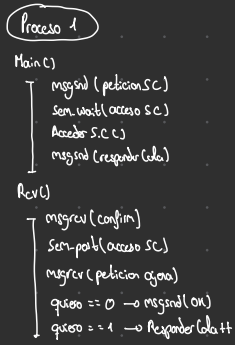 Proceso 1
Main()
msgsnd (peticion SC)
Sem.wait(acceso SC)
Acceder S.C()
msgsnd (responder Cola)
Rcv()
msgrcv (confirm)
Sem-post(acceso SC)
msgrcv (peticion ajena)
quiero == 0 → msgsnd (OK)
quiero == 1 → Responder Cola ++